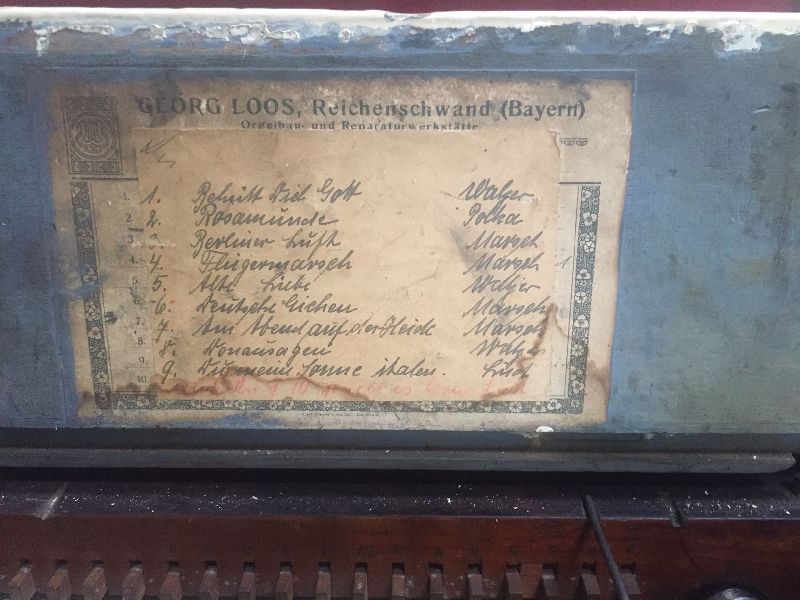 GEORG LOOS, Reichenschwand (Bayern)
Orgelbau- und Reparaturwerkstätte
1. Behüt Dich Gott Walzer
2. Rosamunde Polka
3. Berliner Luft Marsch
4. Fliegermarsch Marsch
5. Alte Liebe Walzer
6. Deutsche Eichen Marsch
7. Am Abend auf der Heide Marsch
8. Donausagen Walzer
9. Du meine Sonne italen. Lied